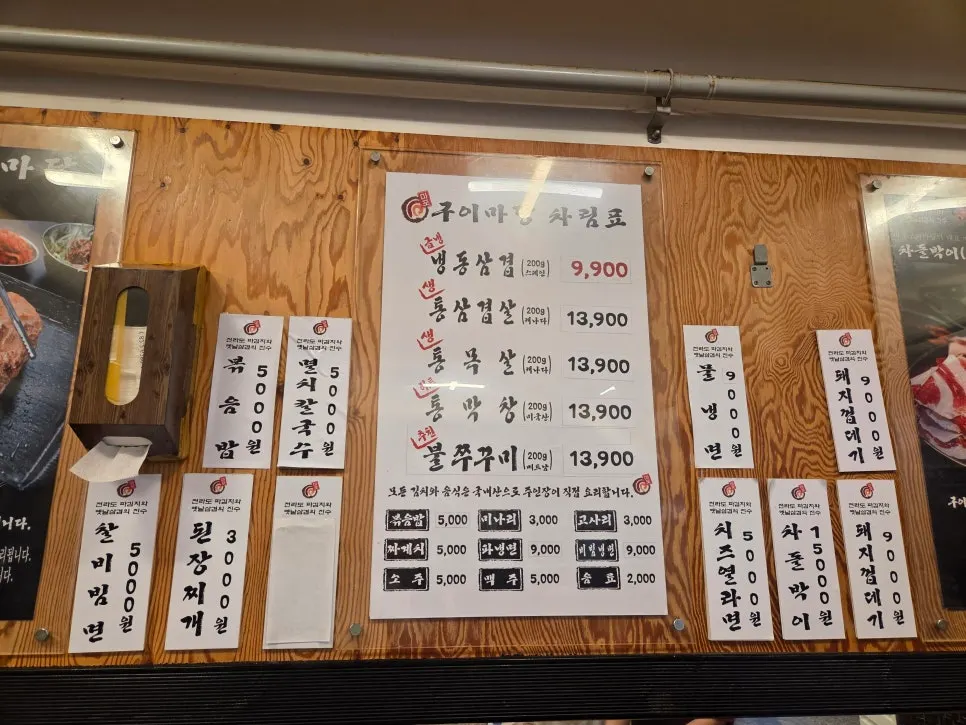 마당
구이마당 차림표
급냉
냉동삼겹 (200g 스페인) 9,900
생
통삼겹살 (200g 캐나다) 13,900
생
통목살 (200g 캐나다) 13,900
통막창 (200g 미국산) 13,900
추천
불쭈꾸미 (200g 베트남) 13,900
모든 김치와 음식은 국내산으로 주인장이 직접 요리합니다.
볶음밥 5,000 미나리 3,000 고사리 3,000
짜계치 5,000 물냉면 9,000 비빔냉면 9,000
소주 5,000 맥주 5,000 음료 2,000
전라도 파김치와
옛날삼겹의 진수
볶음밥 5000원
전라도 파김치와
옛날삼겹의 진수
멸치칼국수 5000원
전라도 파김치와
옛날삼겹의 진수
찰비빔면 5000원
전라도 파김치와
옛날삼겹의 진수
된장찌개 3000원
전라도 파김치와
옛날삼겹의 진수
전라도 파김치와
옛날삼겹의 진수
물냉면 9000원
전라도 파김치와
옛날삼겹의 진수
돼지껍데기 9000원
전라도 파김치와
옛날삼겹의 진수
치즈열라면 5000원
전라도 파김치와
옛날삼겹의 진수
차돌박이 15000원
전라도 파김치와
옛날삼겹의 진수
돼지껍데기 9000원
차돌박이(
니다.
리됩니다.
니다.
구이